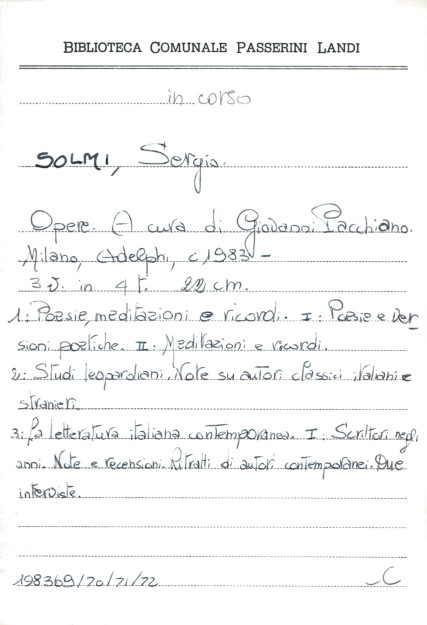 BIBLIOTECA COMUNALE PASSERINI LANDI
in corso
SOLMI, Sergio.
Opere. A cura di Giovanni Pacchiano.
Milano, Adelphi, c 1983 -
3 v. in 4 t. 22 cm.
1: Poesie, meditazioni e ricordi. I: Poesie e ver-
sioni poetiche. II: Meditazioni e ricordi.
2: Studi leopardiani. Note su autori classici italiani e
stranieri.
3: La letteratura italiana contemporanea. I: Scrittori negli
anni. Note e recensioni. Ritratti di autori contemporanei. Due
interviste.
198369/70/71/72
C